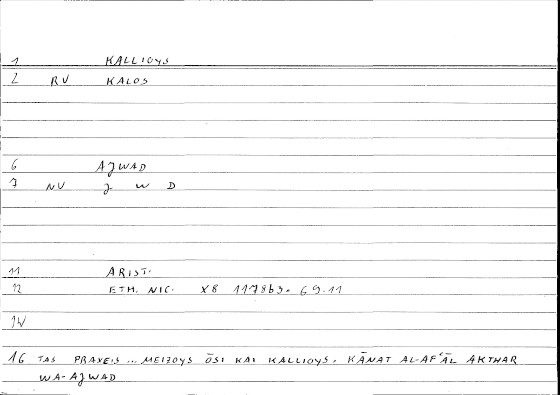 1 KALLIOYS
2 RV KALOS
6 AJWAD
7 NV J W D
11 ARIST.
12 ETH. NIC. X8 1178b3. 69.11
14
16 TAS PRAXEIS ... MEIZOYS ŌSI KAI KALLIOYS. KĀNAT AL-AFʿĀL AKTHAR
WA-AJWAD